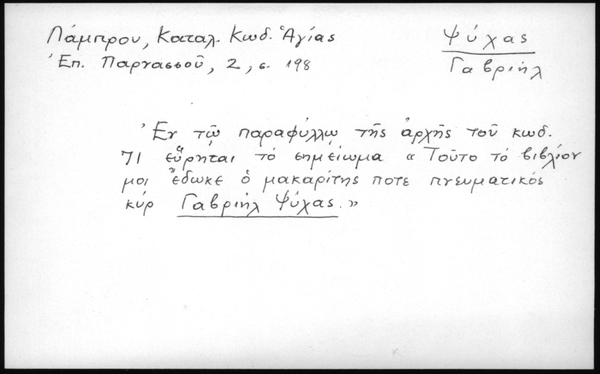 Λάμπρου, Καταλ. Κωδ. Ἁγίας
Ἐπ. Παρνασσοῦ, 2, σ. 198
Ψύχας
Γαβριήλ
Ἐν τῷ παραφύλλῳ τῆς ἀρχῆς τοῦ κωδ.
71 εὕρηται τό σημείωμα «Τοῦτο τό βιβλίον
μοι ἔδωκε ὁ μακαρίτης ποτε πνευματικός
κύρ Γαβριήλ Ψύχας.»